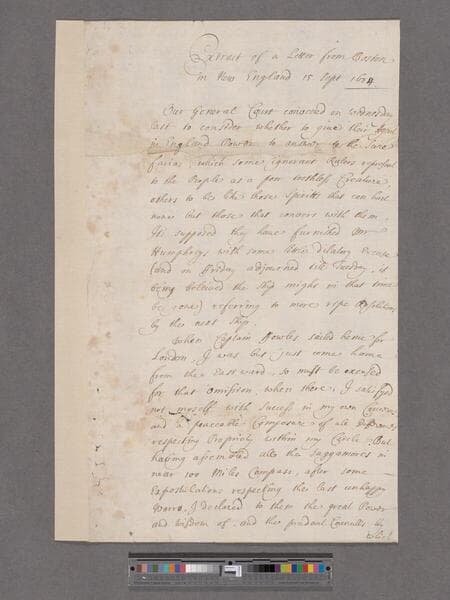 Extract of a Letter from Boston
in New England 15 Sept 1684.
Our General Court convened on Wednesday
last to consider whether to give their
in England Power to answer to the Scire
facias, which some ignorant Rulers represent
to the People as a poor toothless Creature,
others to be like those Spiritts that can hurt
none but those that convers with them.
Its supposed they have furnished Mr
Humphrys with some dilatory Excuse
(and on Friday adjourned till Tuesday, it
being believed the ship might in that time
be gone) referring to more ripe Resolution
by the next ship.
When Captain Fowles sailed hence for
London, I was but just come home
from the Eastward, so must be excused
for that omission, when there, I satisfyed
not myself with Success in my own Concerns
and a peaceable Composure of all Differences
respecting Propriety within my Circle, But
having assembled all the Saggamores in
near 100 Miles Compass, after some
Expostulations respecting the last unhappy
Warre, I declared to them the great Power
and wisdom of and the prudent Councills by
which